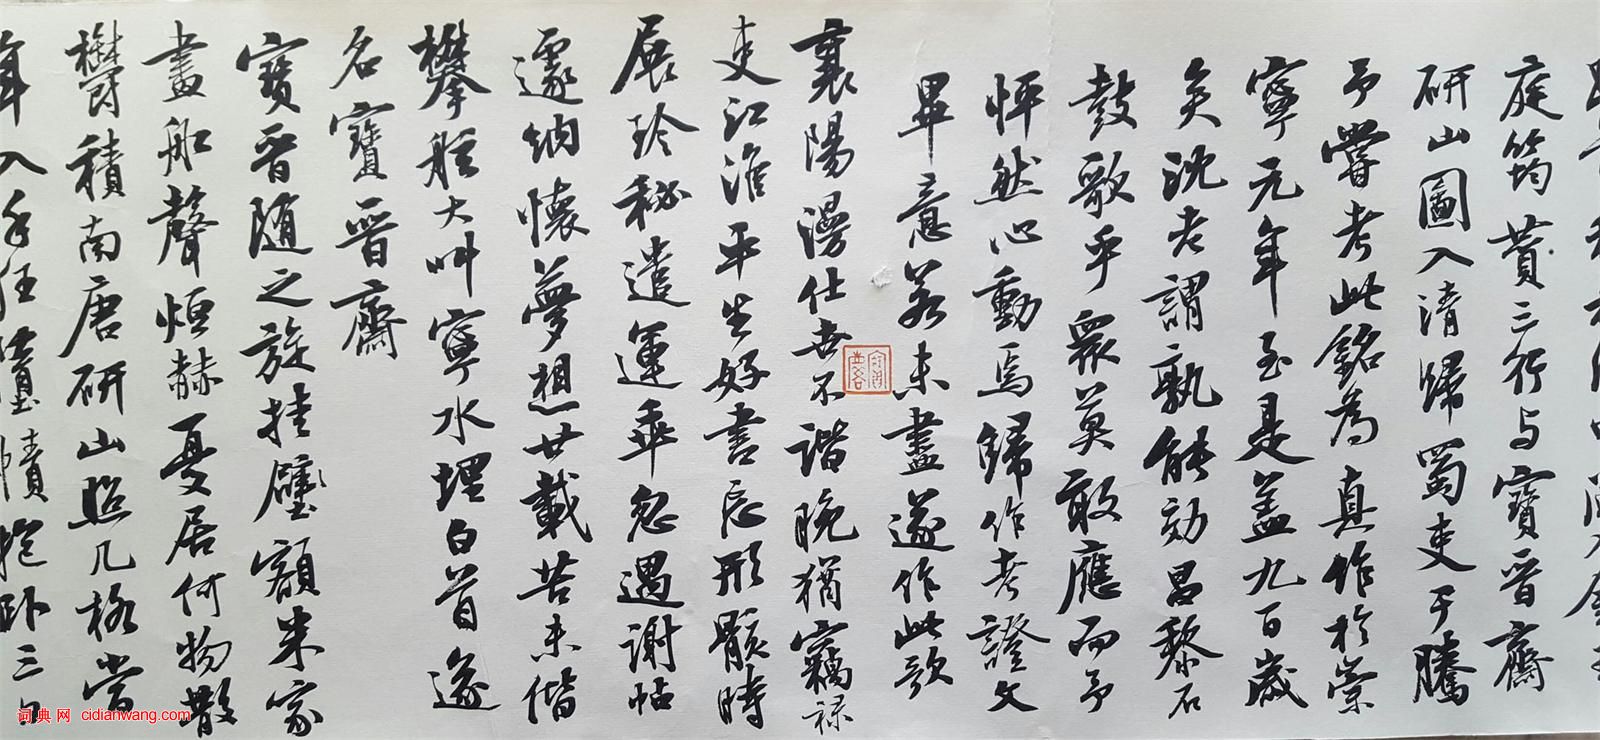 庭筠贊三行与寶晉齋
研山圖入清歸蜀吏于騰
予嘗考此銘為真作於崇
寧元年至是蓋九百歲
矣沈老謂孰能効昌黎石
鼓歌乎眾莫敢應而予
怦然心動焉歸作考證文
畢意若未盡遂作此歌
襄陽漫仕世不諧晚猶竊祿
吏江淮平生好書忘形骸時
展珍秘遣運乖忽遇謝帖
邃納懷夢想廿載苦未偕
攀舷大叫寧水埋白首遂
名寶晉齋
寶晉随之旋挂壁額米家
畫船聲烜赫憂居何物散
鬱積南唐研山照几格嘗
年入手狂抱卧三日
词典网 cidianwang.com